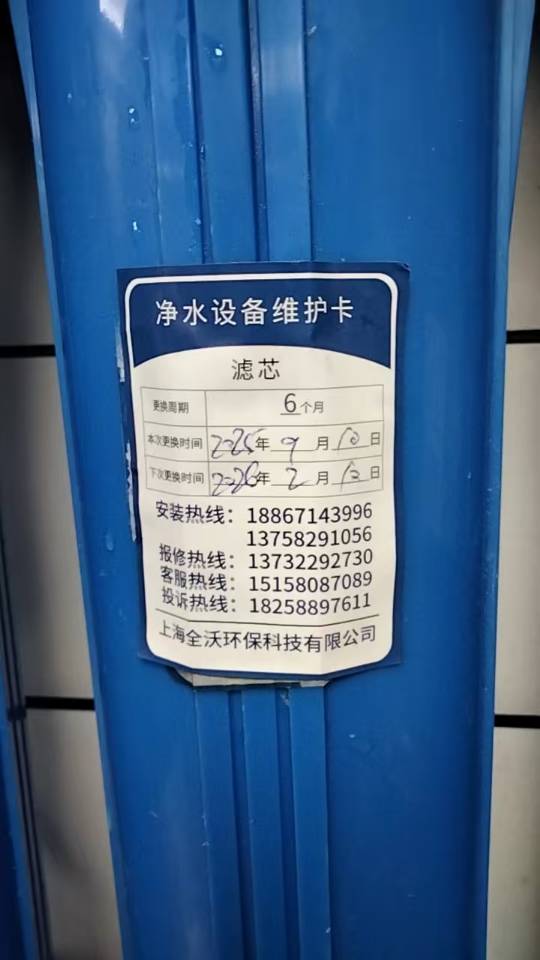 净水设备维护卡
滤芯
更换周期 6个月
本次更换时间 2025年9月10日
下次更换时间 2026年2月10日
安装热线：18867143996
13758291056
报修热线：13732292730
客服热线：15158087089
投诉热线：18258897611
上海全沃环保科技有限公司